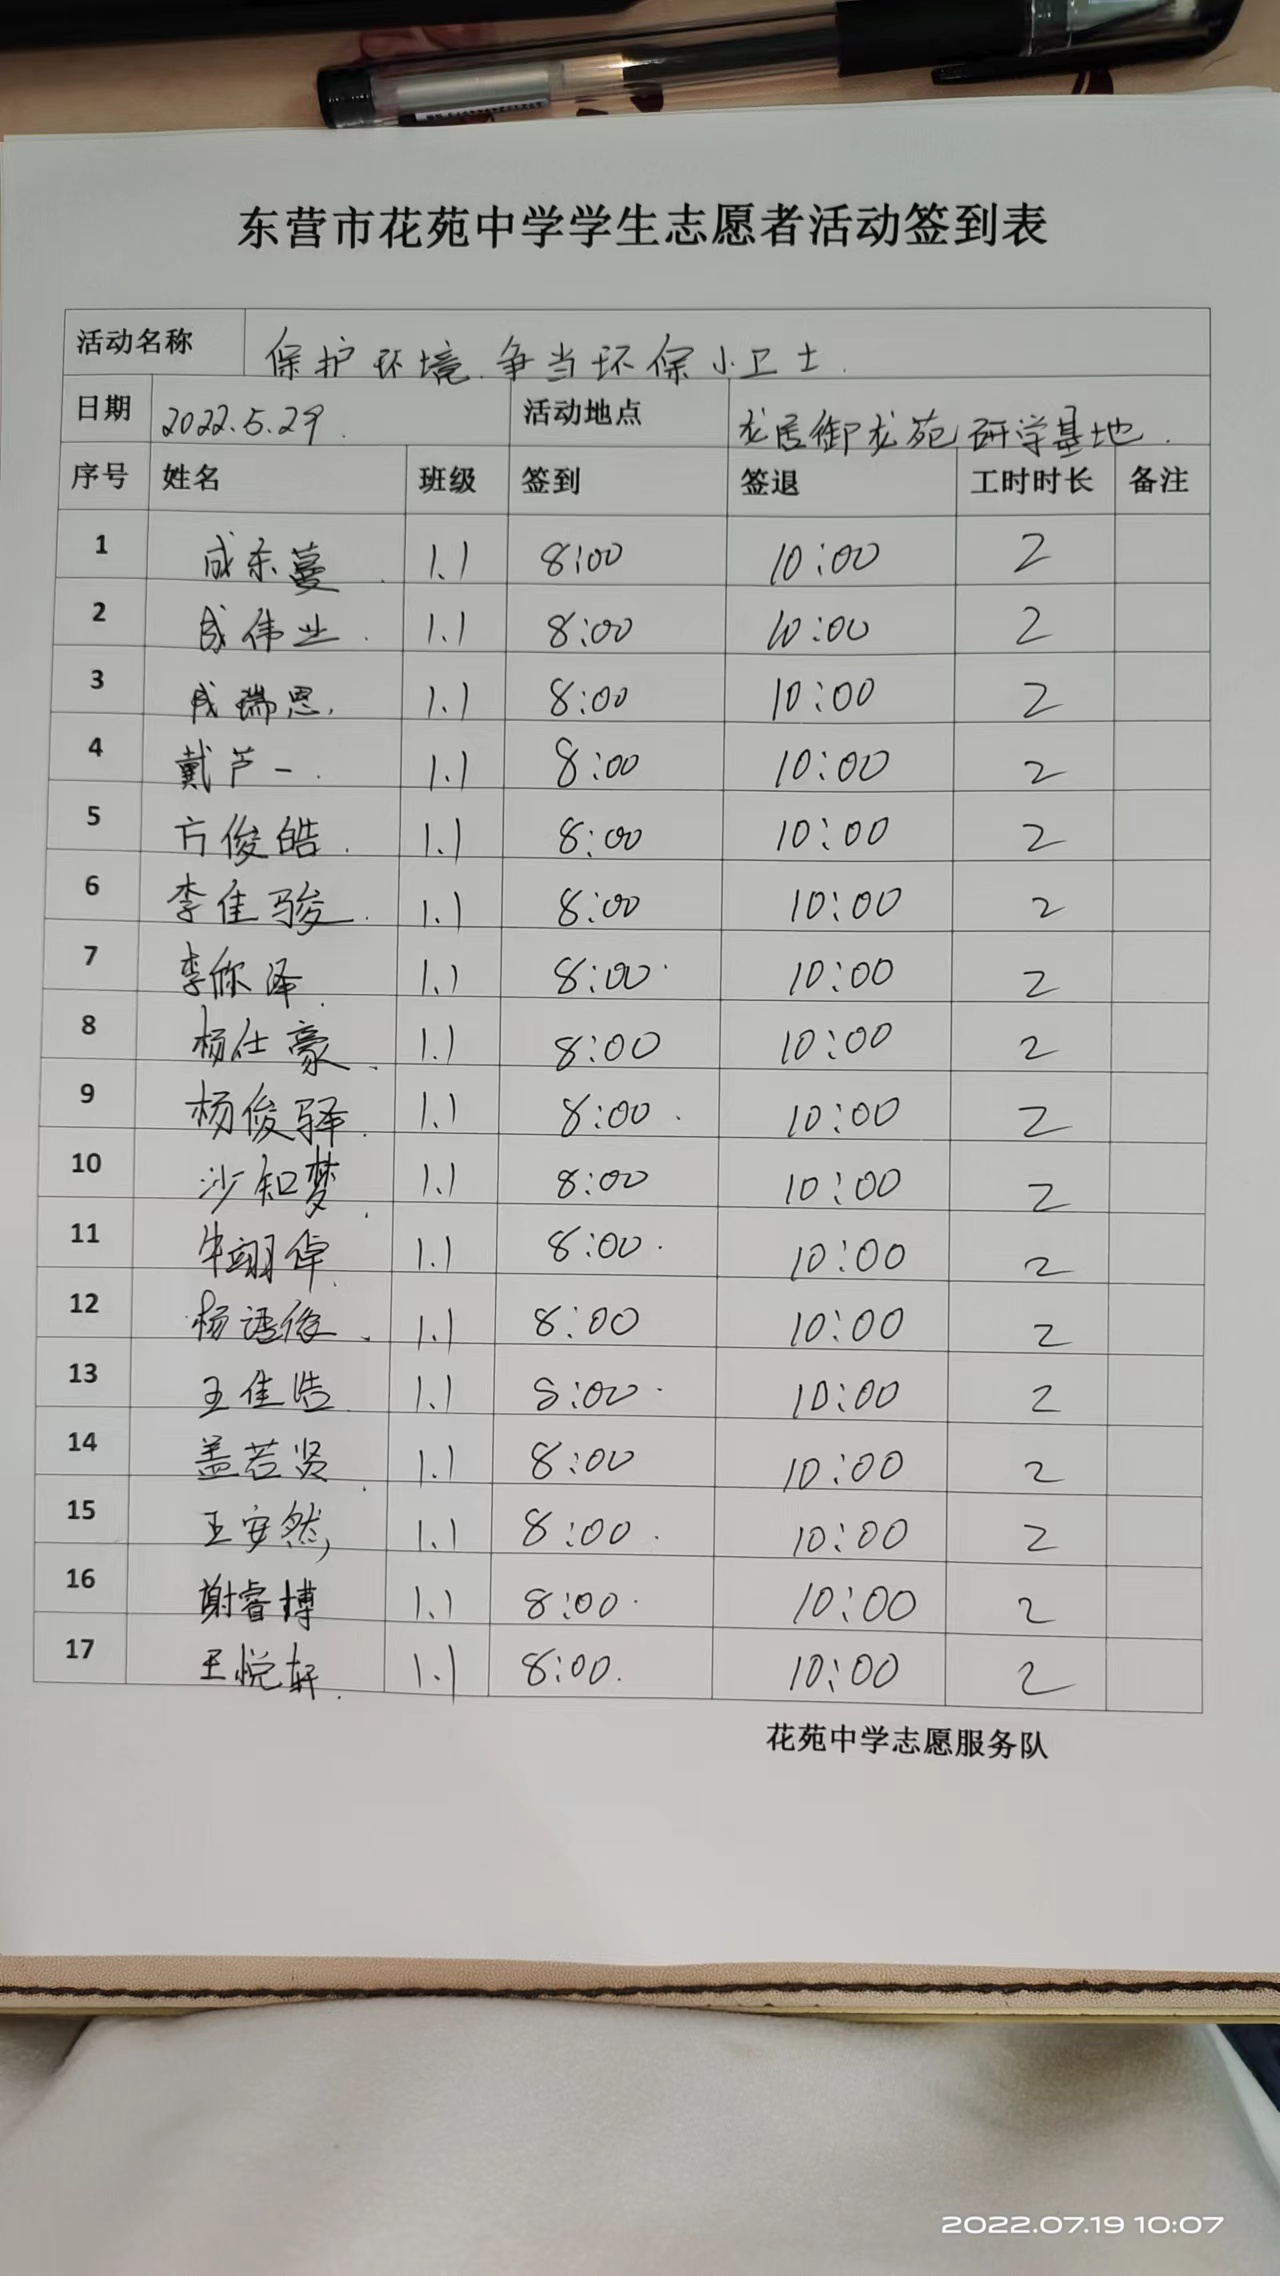 东营市花苑中学学生志愿者活动签到表
活动名称 保护环境.争当环保小卫士.
日期 2022.5.29. 活动地点 龙居御龙苑研学基地.
序号 姓名 班级 签到 签退 工时时长 备注
1 成东蔓. 1.1 8:00 10:00 2
2 成伟业. 1.1 8:00 10:00 2
3 成瑞恩. 1.1 8:00 10:00 2
4 戴芦一. 1.1 8:00 10:00 2
5 方俊皓. 1.1 8:00 10:00 2
6 李佳骏. 1.1 8:00 10:00 2
7 李你泽. 1.1 8:00. 10:00 2
8 杨仕豪. 1.1 8:00 10:00 2
9 杨俊驿. 1.1 8:00. 10:00 2
10 沙知梦. 1.1 8:00 10:00 2
11 牛翊倬. 1.1 8:00. 10:00 2
12 杨语俊. 1.1 8:00 10:00 2
13 王佳浩. 1.1 8:00. 10:00 2
14 盖若贤. 1.1 8:00 10:00 2
15 王安然, 1.1 8:00. 10:00 2
16 谢睿博 1.1 8:00. 10:00 2
17 王悦轩. 1.1 8:00. 10:00 2
花苑中学志愿服务队
2022.07.19 10:07